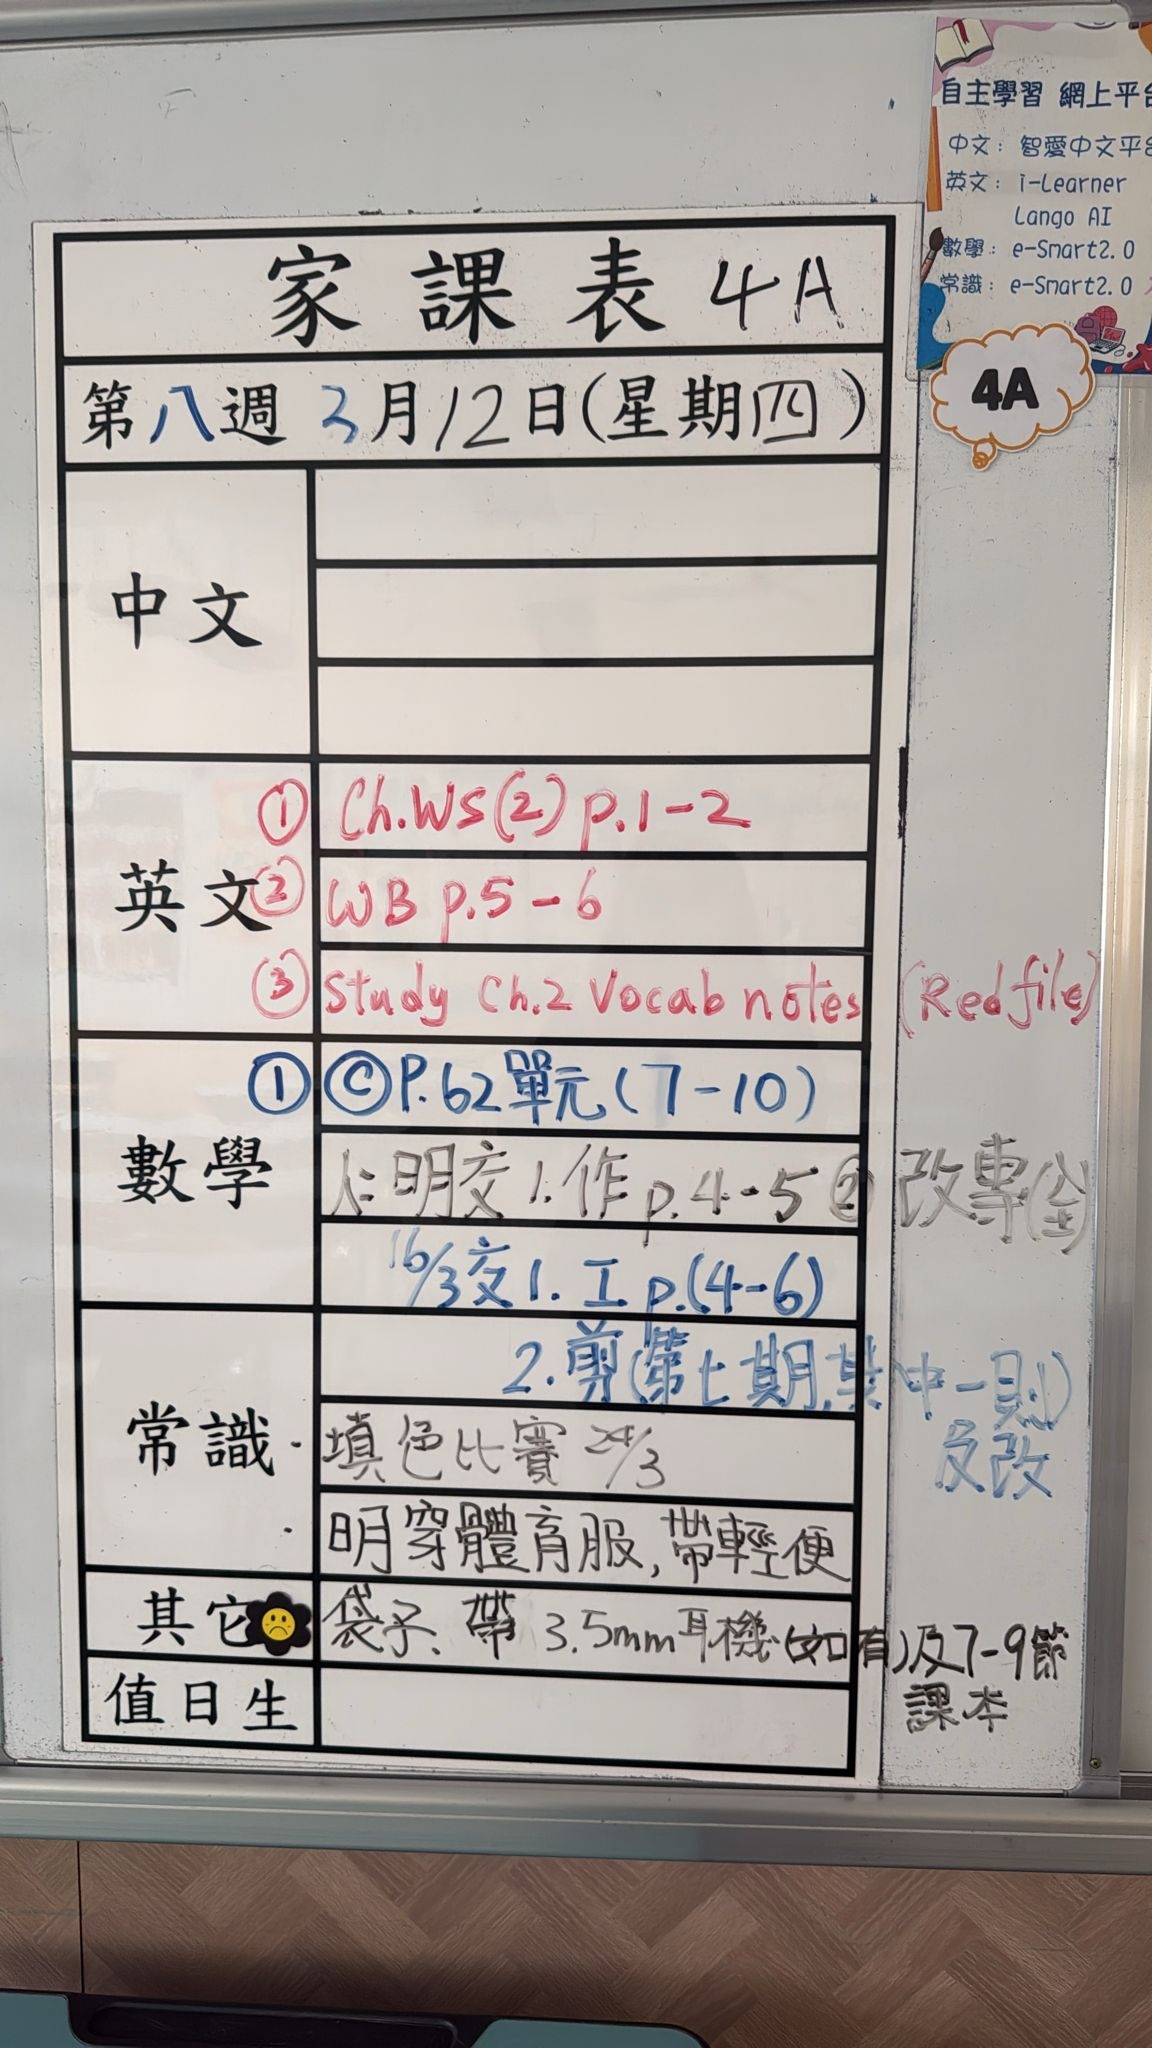 自主學習 網上平台
中文：智愛中文平台
英文：i-Learner
Lango AI
數學：e-Smart2.0
常識：e-Smart2.0
4A
家課表 4A
第八週 3月12日(星期四)
中文
英文
① Ch.WS(2) p.1-2
② WB p.5-6
③ Study Ch.2 Vocab notes (Red file)
數學
① Ⓒ P.62 單元(7-10)
人: 明交 1. 作 p.4-5 ② 改專(全)
16/3交 1. 工 p.(4-6)
2. 剪(第七期,其中一則)
及改
常識
填色比賽 24/3
明穿體育服,帶輕便
其它
袋子、帶 3.5mm耳機(如有)及7-9節
課本
值日生